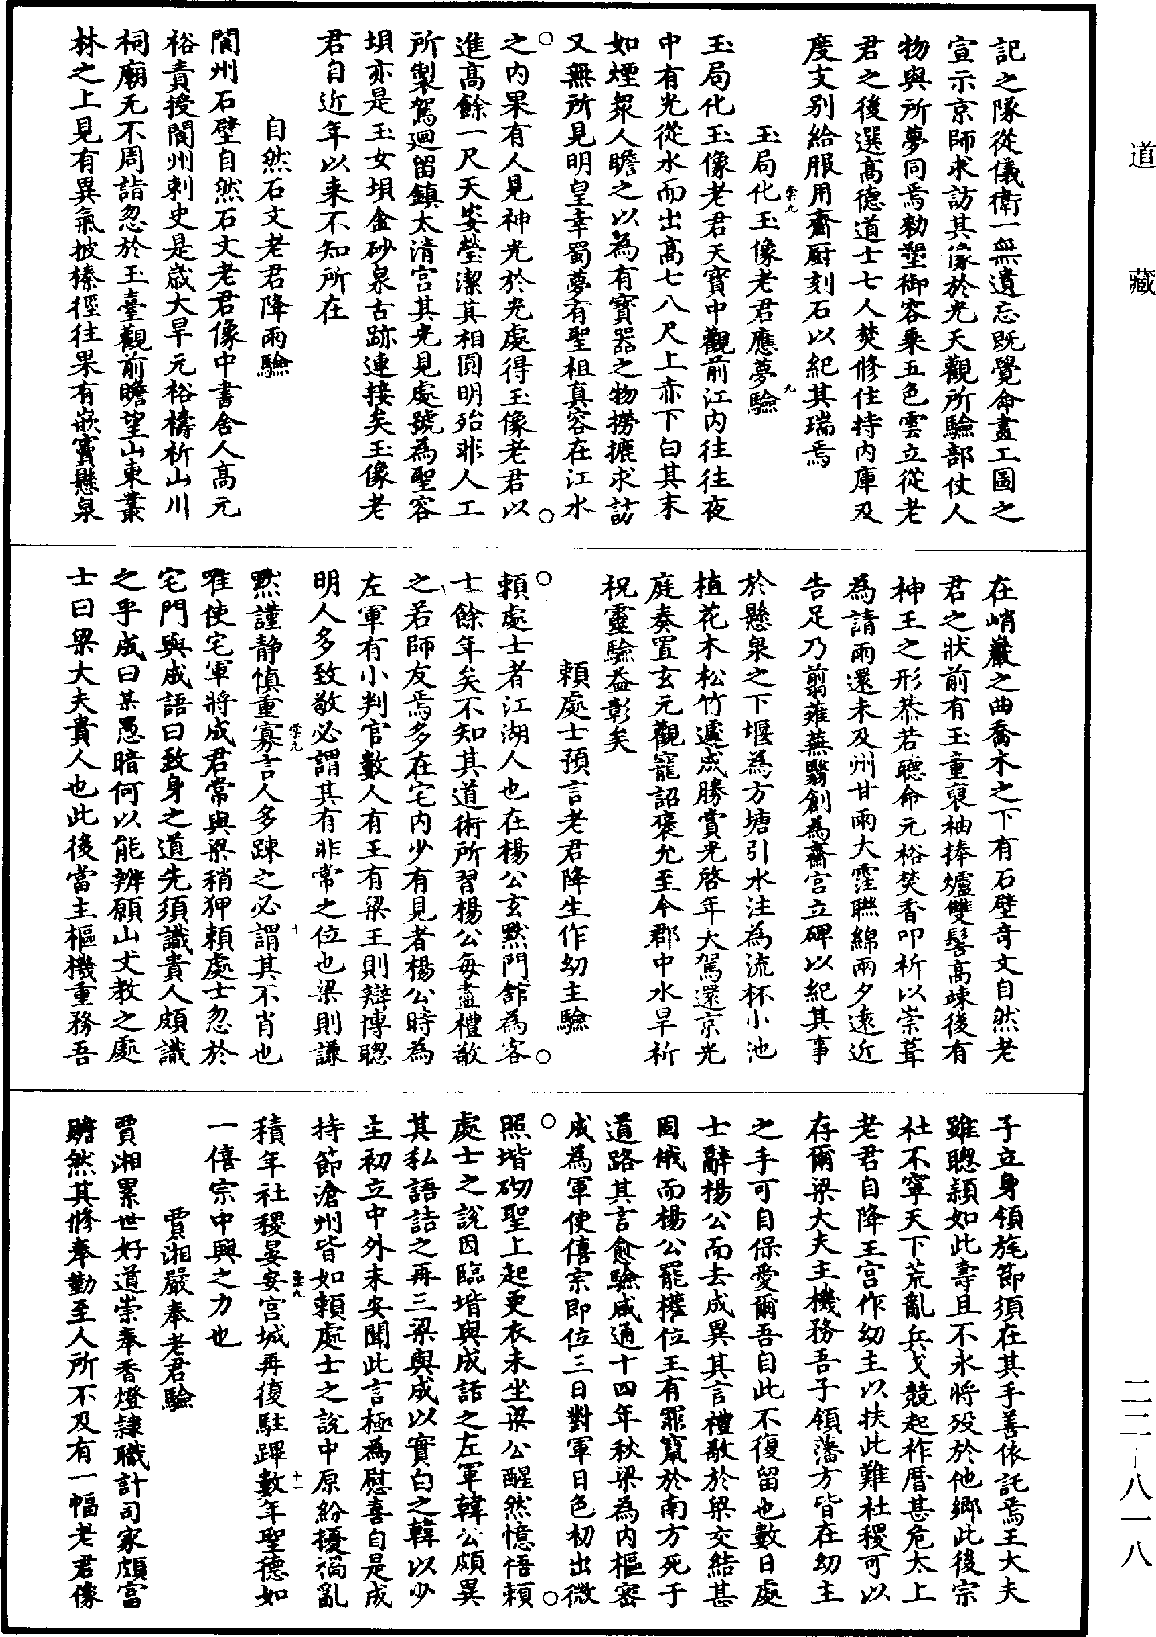 道藏
記之隊從儀衛一無遺忘既覺命畫工圖之
宣示京師求訪其像於光天觀所驗部仗人
物與所夢同焉勑塑御容乗五色雲立從老
君之後選高德道士七人焚修住持内庫及
度支别給服用齋厨刻石以紀其瑞焉
玉局化玉像老君應夢驗
玉局化玉像老君天寳中觀前江内往往夜
中有光從水而出高七八尺上赤下白其末
如煙衆人瞻之以為有寳器之物撈摝求訪
又無所見明皇幸蜀夢有聖祖真容在江水
之内果有人見神光於光處得玉像老君以
進高餘一尺天姿瑩潔其相圓明殆非人工
所製駕迴留鎮太清宫其光見處號為聖容
垻亦是玉女垻金砂泉古跡連接矣玉像老
君自近年以来不知所在
自然石文老君降雨驗
閬州石壁自然石文老君像中書舍人高元
裕責授閬州刺史是歲大旱元裕禱祈山川
祠廟无不周詣忽於玉臺觀前瞻望山東叢
林之上見有異氣披榛徑往果有嵌竇懸泉
在峭巖之曲喬木之下有石壁奇文自然老
君之狀前有玉童褒袖捧爐雙髻高竦後有
神王之形恭若聽命元裕焚香叩祈以崇葺
為請雨還未及州甘雨大霔聮綿兩夕遠近
告足乃翦薙蕪翳創為齋宫立碑以紀其事
於懸泉之下堰為方塘引水注為流杯小池
植花木松竹遽成勝賞光啓年大駕還京光
庭奏置玄元觀寵詔褒允至今郡中水旱祈
祝靈驗益彰矣
頼處士預言老君降生作幼主驗
頼處士者江湖人也在楊公玄黙門館為客
士餘年矣不知其道術所習楊公每盡禮敬
之若師友焉多在宅内少有見者楊公時為
左軍有小判官數人有王有梁王則辯博聰
明人多致敬必謂其有非常之位也梁則謙
黙謹静慎重寡言人多踈之必謂其不肖也
唯使宅軍將成君常與梁稍狎頼處士忽於
宅門與成語曰致身之道先須識貴人頗識
之乎成曰某愚暗何以能辨願山丈教之處
士曰梁大夫貴人也此後當主樞機重務吾
子立身領旄節須在其手善依託焉王大夫
雖聰顈如此壽且不永將殁於他鄉此後宗
社不寧天下荒亂兵戈競起祚曆甚危太上
老君自降王宫作幼主以扶此難社稷可以
存爾梁大夫主機務吾子領藩方皆在幼主
之手可自保愛爾吾自此不復留也數日處
士辭楊公而去成異其言禮敬於梁交結甚
固俄而楊公罷權位王有罪竄於南方死于
道路其言愈驗咸通十四年秋梁為内樞密
成為軍使僖宗即位三日對軍日色初出微
照堦砌聖上起更衣未坐梁公醒然憶悟頼
處士之說因臨堦與成話之左軍韓公頗異
其私語詰之再三梁與成以實白之韓以少
主初立中外未安聞此言極為慰喜自是成
持節滄州皆如頼處士之說中原紛擾禍亂
積年社稷晏安宫城再復駐蹕數年聖德如
一僖宗中興之力也
賈湘嚴奉老君驗
賈湘累世好道崇奉香燈隷職計司家頗富
贍然其修奉勤至人所不及有一幅老君像
二二—八一八